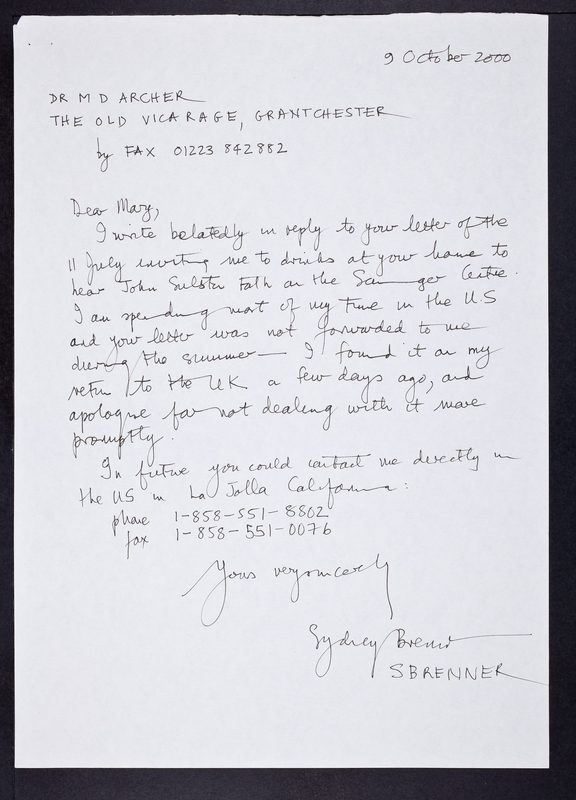 9 October 2000
DR M D ARCHER
THE OLD VICARAGE, GRANTCHESTER
by FAX 01223 842882
Dear Mary,
I write belatedly in reply to your letter of the
11 July inviting me to drinks at your home to
hear John Sulston talk on the Sanger Centre.
I am spending most of my time in the U.S
and your letter was not forwarded to me
during the summer — I found it on my
return to the UK a few days ago, and
apologise for not dealing with it more
promptly.
In future you could contact me directly in
the US in La Jolla California:
phone 1-858-551-8802
fax 1-858-551-0076
Yours very sincerely
Sydney Brenner
S BRENNER